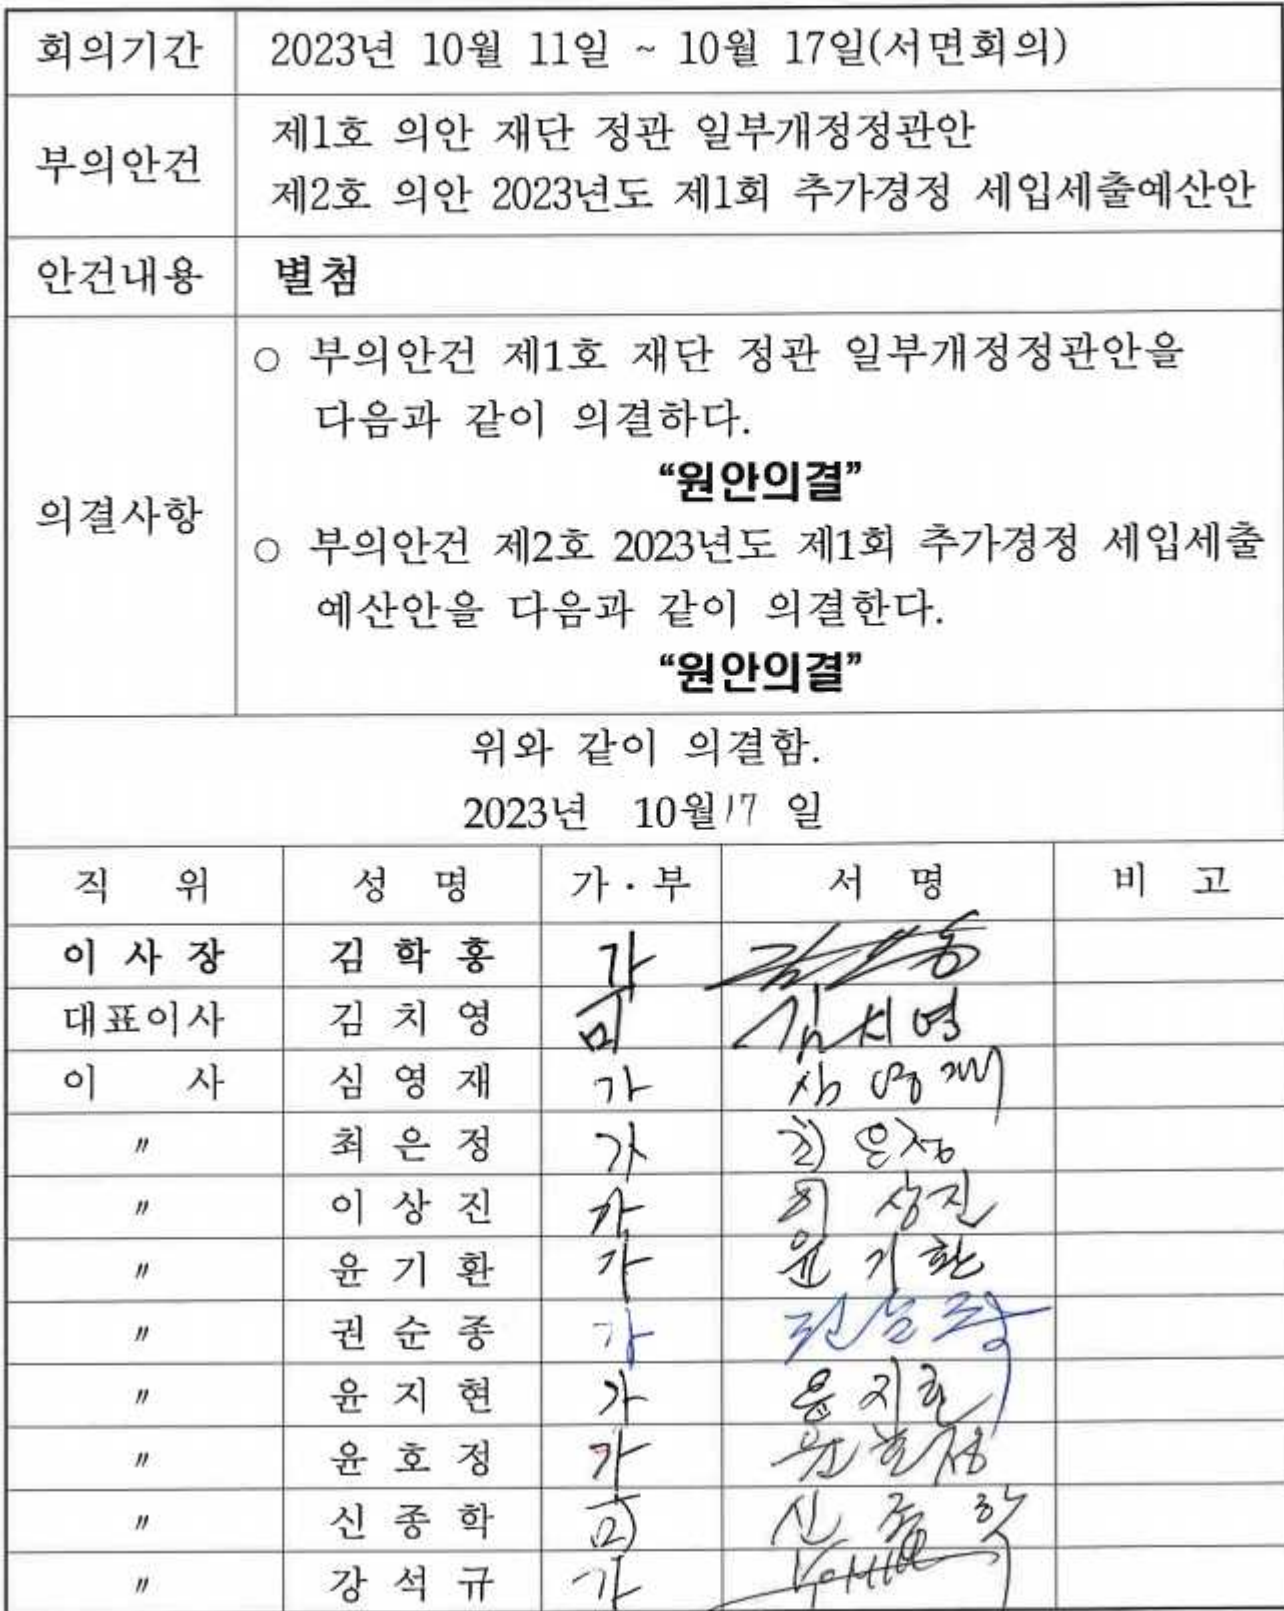 회의기간 2023년 10월 11일 ~ 10월 17일(서면회의)
부의안건 제1호 의안 재단 정관 일부개정정관안
제2호 의안 2023년도 제1회 추가경정 세입세출예산안
안건내용 별첨
의결사항
○ 부의안건 제1호 재단 정관 일부개정정관안을
다음과 같이 의결하다.
“원안의결”
○ 부의안건 제2호 2023년도 제1회 추가경정 세입세출
예산안을 다음과 같이 의결한다.
“원안의결”
위와 같이 의결함.
2023년 10월 17 일
직 위 성 명 가·부 서 명 비 고
이 사 장 김 학 홍 가
대표이사 김 치 영 김치영
이 사 심 영 재 가 심영재
〃 최 은 정 가 최은정
〃 이 상 진 가 이상진
〃 윤 기 환 가 윤기환
〃 권 순 종 가
〃 윤 지 현 가 윤지현
〃 윤 호 정 가 윤호정
〃 신 종 학 신종학
〃 강 석 규 가